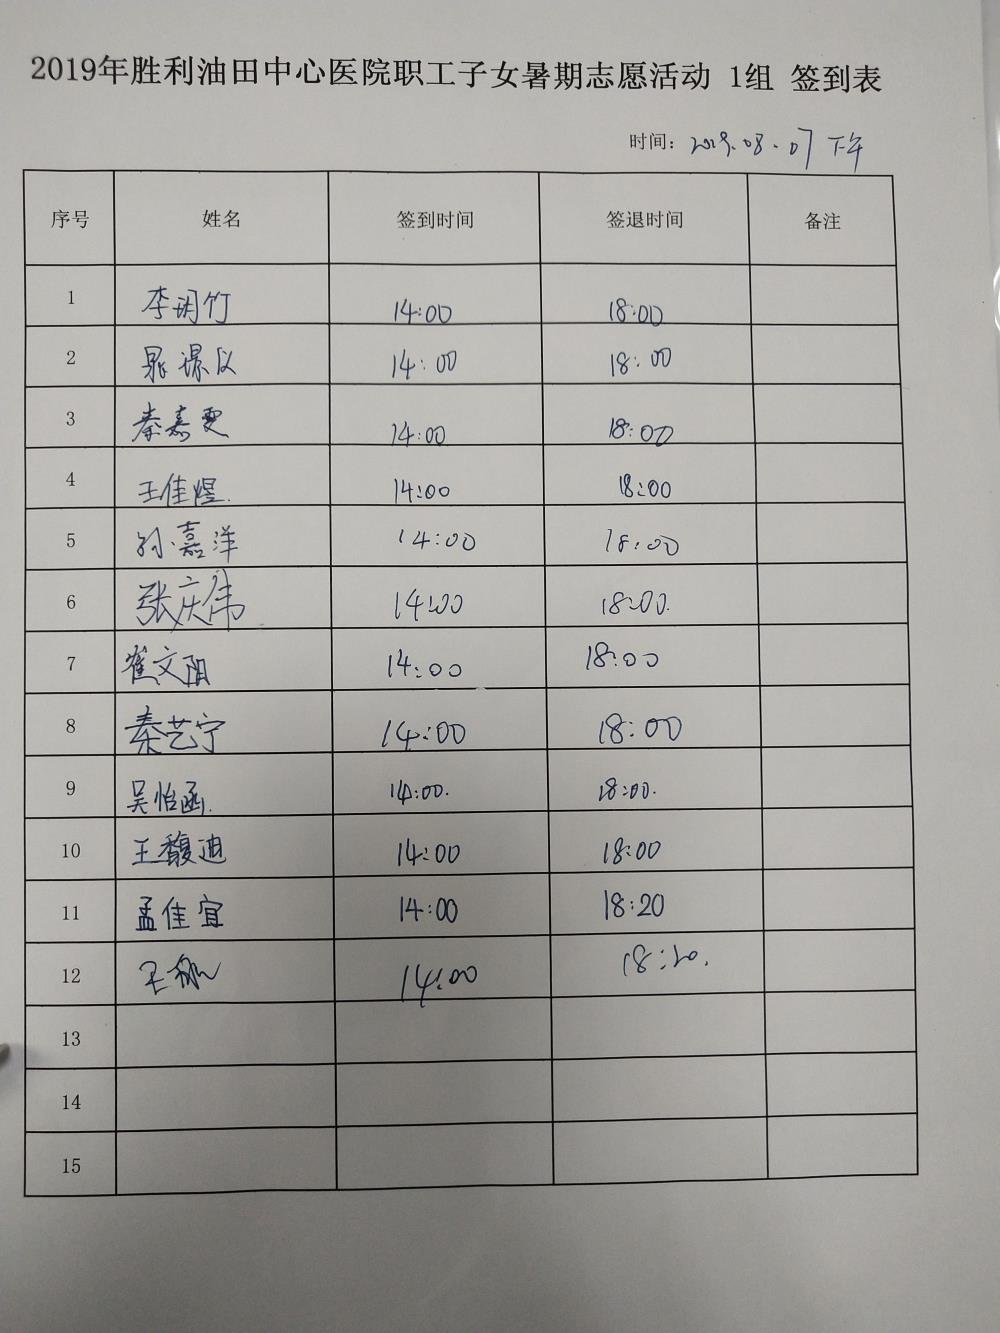 2019年胜利油田中心医院职工子女暑期志愿活动 1组 签到表
时间：2019.08.07 下午
序号 姓名 签到时间 签退时间 备注
1 李玥竹 14:00 18:00
2 14:00 18:00
3 秦嘉雯 14:00 18:00
4 王佳煜. 14:00 18:00
5 孙嘉洋 14:00 18:00
6 张庆伟 14:00 18:00.
7 崔文阳 14:00 18:00
8 秦艺宁 14:00 18:00
9 吴怡函. 14:00. 18:00.
10 王馥迪 14:00 18:00
11 孟佳宜 14:00 18:20
12 14:00 18:20.
13
14
15